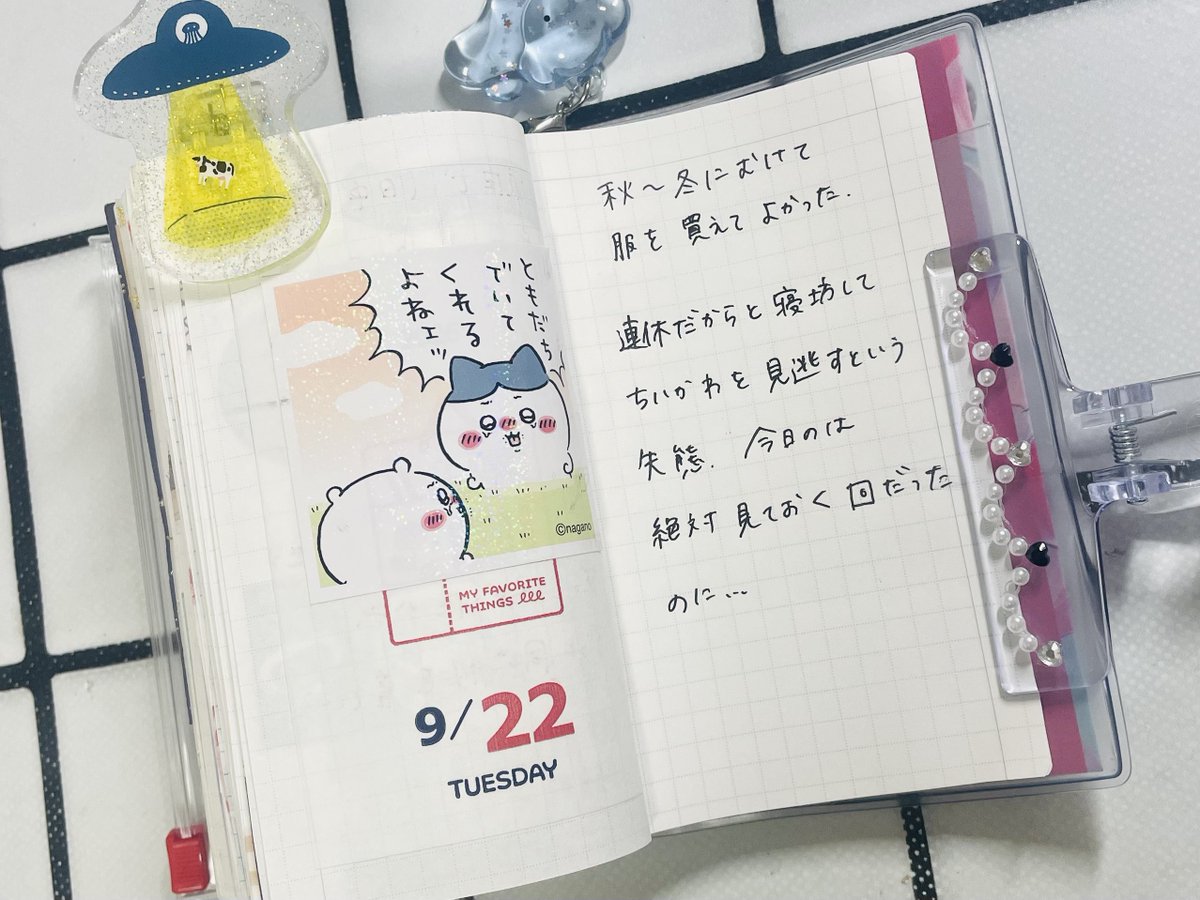 ともだち
でいて
くれる
よねェッ
©nagano
MY FAVORITE
THINGS
9/22
TUESDAY
秋〜冬にむけて
服を買えてよかった.
連休だからと寝坊して
ちいかわを見逃すという
失態. 今日のは
絶対見ておく回だった
のに…